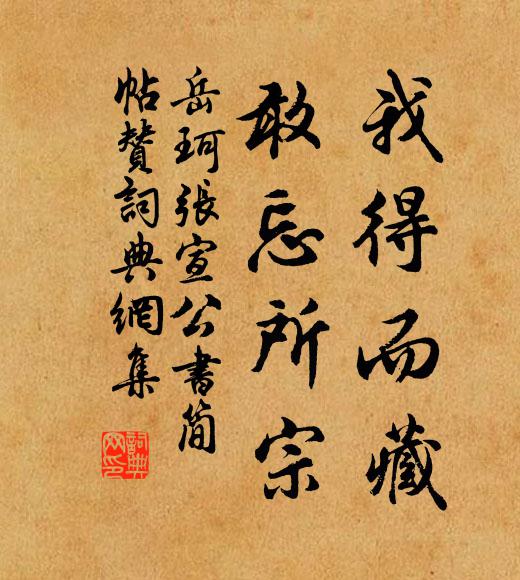 我得而藏
敢忘所宗
岳珂張宣公書简
帖贊詞典網集
詞典
网印